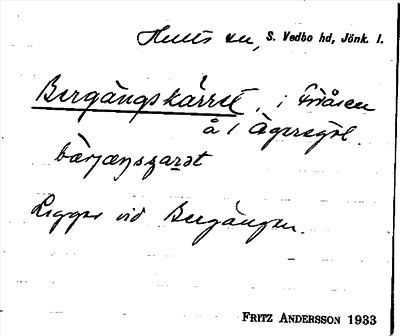 Hults sn, S. Vedbo hd, Jönk. l.
Bergängskärret, i Friåsen
å / Ägersgöl.
bärjæŋsҫarət
Ligger vid Bergängen.
FRITZ ANDERSSON 1933